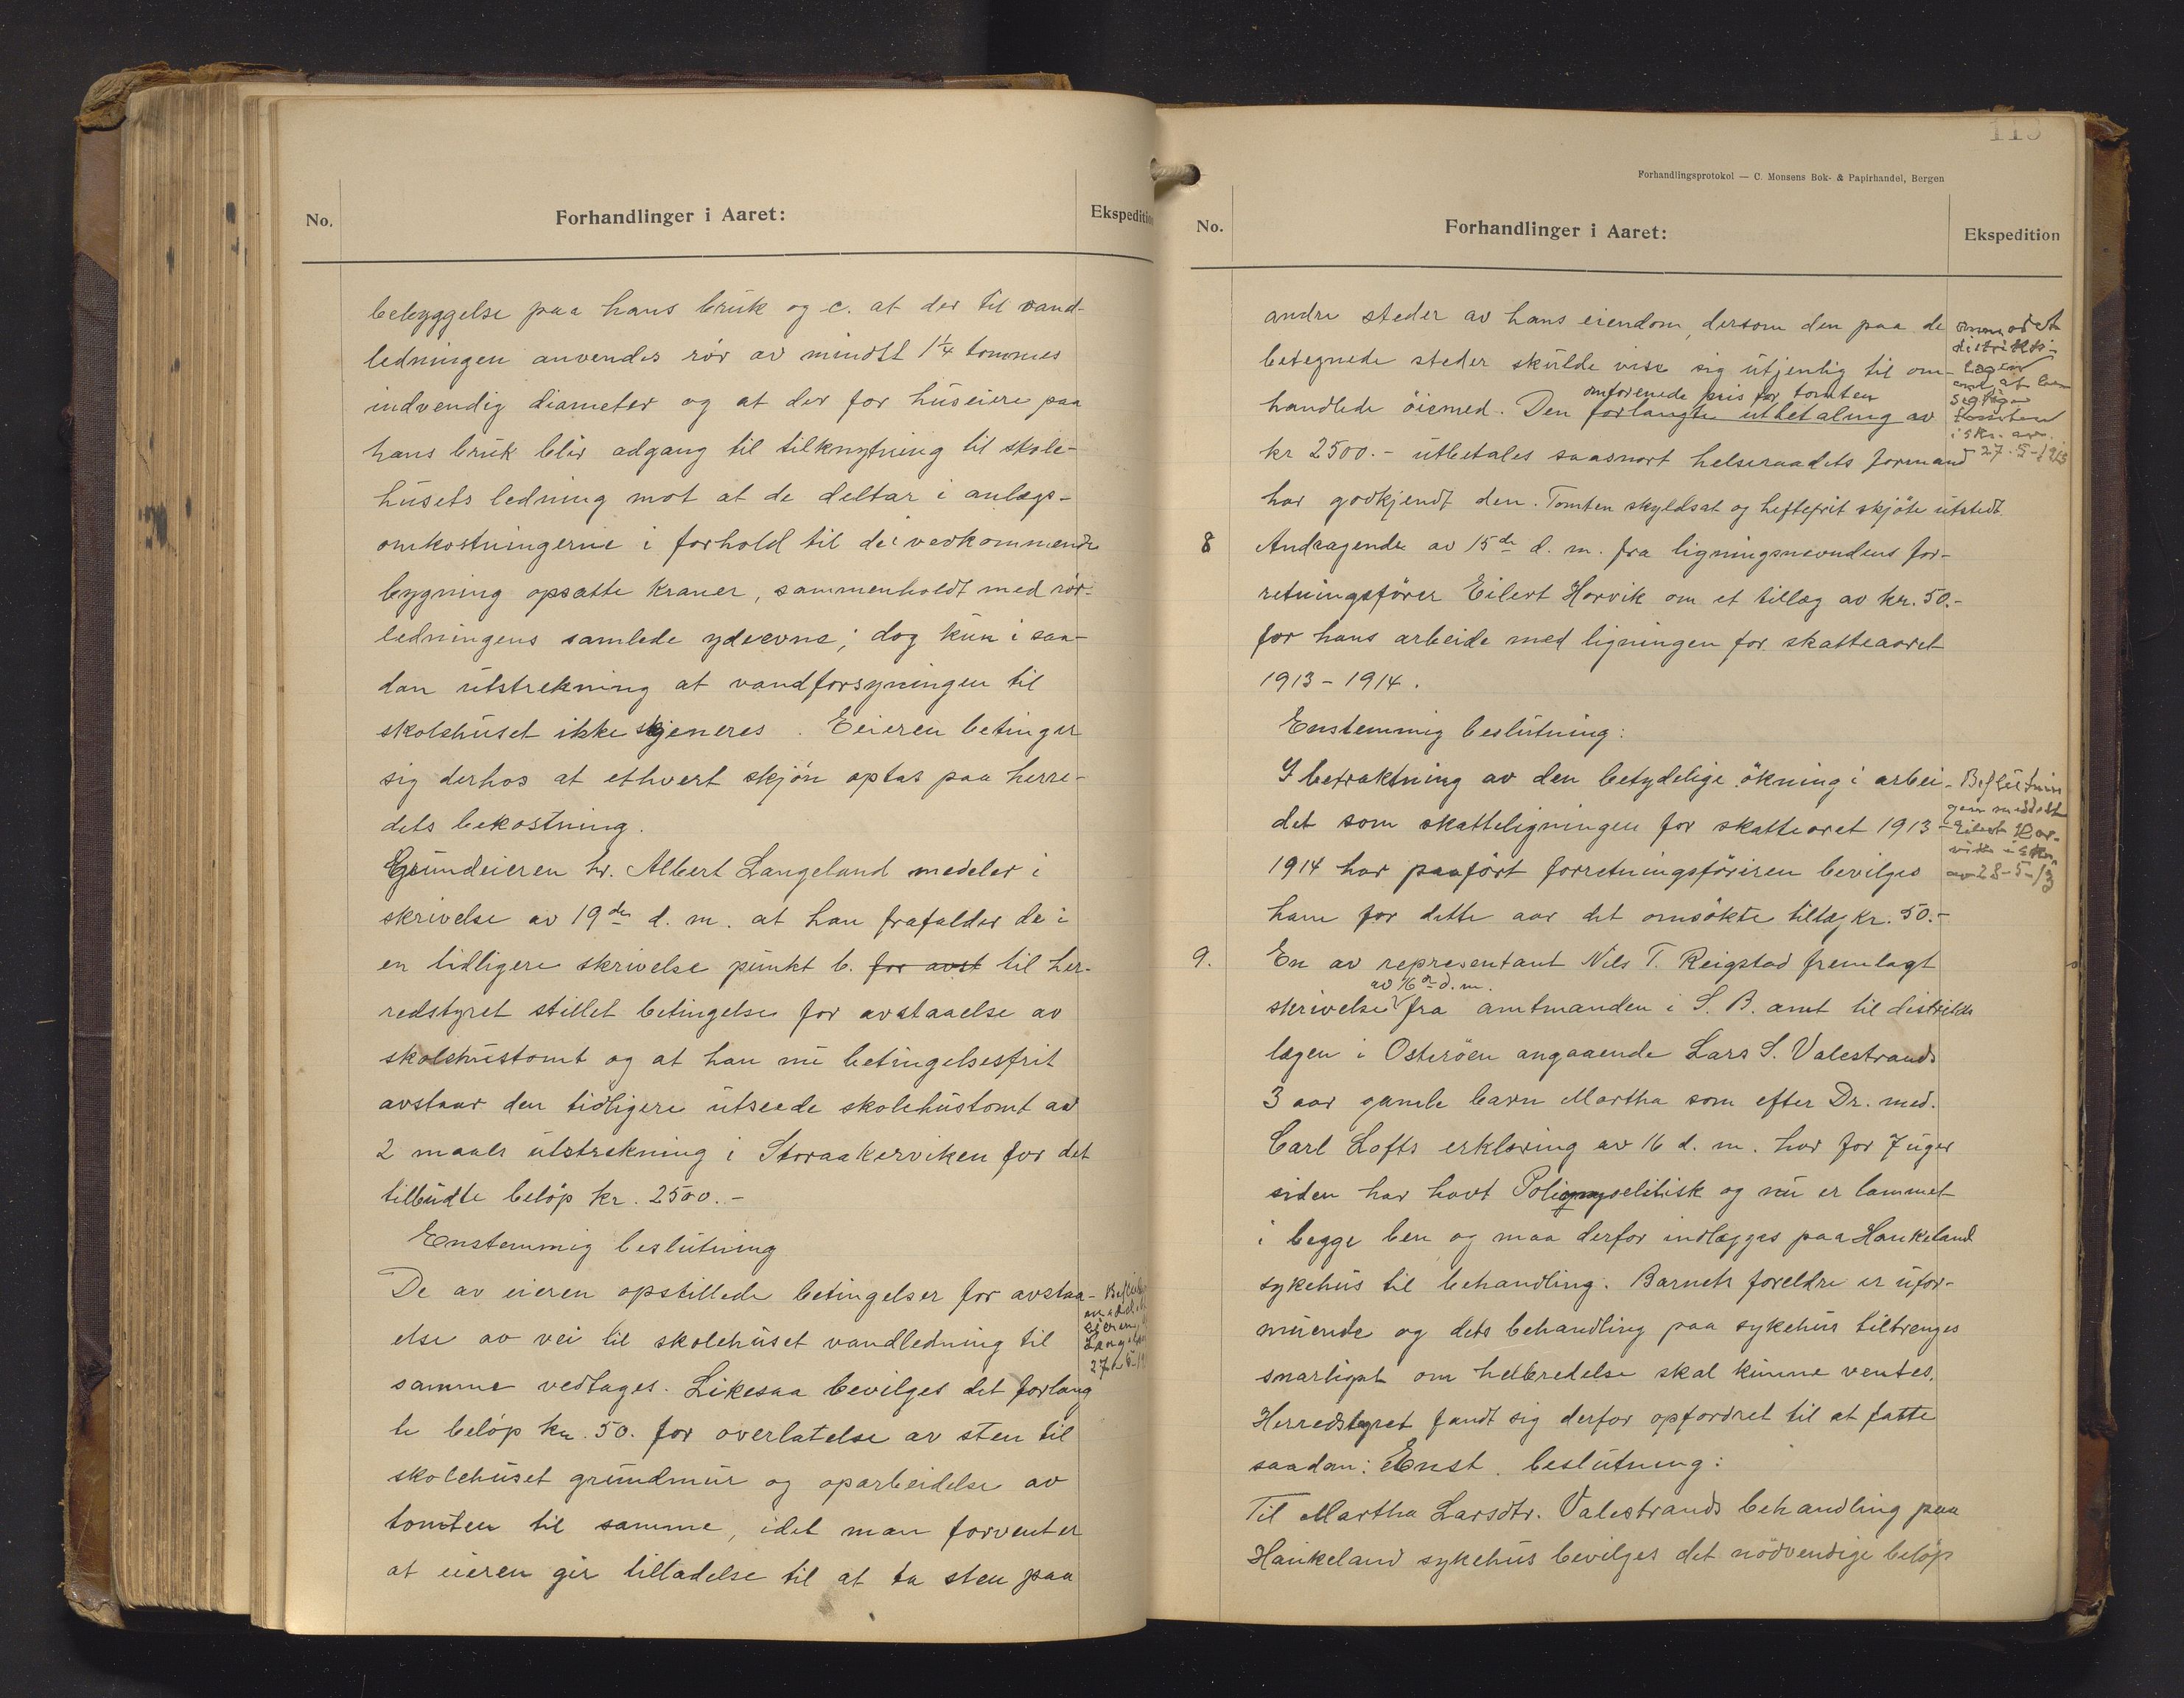 No.
Forhandlinger i Aaret:
Ekspeditio
bebyggelse paa hans bruk og c. at der til vand-
ledningen anvendes rör av mindst 1 1/4 tommes
indvendig diameter og at der for huseiere paa
hans bruk blir adgang til tilknytning til skole-
husets ledning mot at de deltar i anlægs-
omkostningerne i forhold til de i vedkommende
bygning opsatte kraner, sammenholdt med rör-
ledningens samlede ydeevne; dog kun i saa-
dan utstrekning at vandforsyningen til
skolehuset ikke sjeneres. Eieren betinger
sig derhos at ethvert skjön optas paa herre-
dets bekostning.
Grundeieren hr. Albert Langeland medeler i
skrivelse av 19de d. m. at han frafalder de i
en tidligere skrivelse punkt b. for avst til her-
redstyret stillet betingelse for avstaaelse av
skolehustomt og at han nu betingelsesfrit
avstaar den tidligere utseede skolehustomt av
2 maals utstrekning i Storaakerviken for det
tilbudte belöp kr. 2500.-
Enstemmig beslutning
De av eieren opstillede betingelser for avstaa-
else av vei til skolehuset vandledning til
samme vedtages. Likesaa bevilges det forlang
te belöp kr. 50. for overlatelse av sten til
skolehuset grundmur og oparbeidelse av
tomten til samme, idet man forventer
at eieren gir tilladelse til at ta sten paa
eieren
27-5-19
115
Forhandlingsprotokol — C. Monsens Bok- & Papirhandel, Bergen
No.
Forhandlinger i Aaret:
Ekspedition
andre steder av hans eiendom, dersom den paa de
betegnede steder skulde vise sig utjenlig til om-
omforenede pris for tomten
handlede öiemed. Den forlangte utbetaling av
kr 2500.- utbetales saasnart helseraadets formand
har godkjendt den. Tomten skyldsat og heftefrit skjöte utstedt
distrikts-
lægen
om at be-
sigtige
tomten
i skr. av.
27-5-1913
8 Andragende av 15de d. m. fra ligningsnevndens for-
retningsförer Eilert Horvik om et tillæg av kr. 50.-
for hans arbeide med ligningen for skatteaaret
1913-1914.
Enstemmig beslutning:
I betraktning av den betydelige ökning i arbei-
det som skatteligningen for skattearet 1913-
1914 har paafört forretningsföreren bevilges
ham for dette aar det omsökte tillæg kr. 50.-
Beslutnin
gen meddelt
Eilert Hor-
vik i skr.
av 28-5-13
9. En av representant Nils T. Reigstad fremlagt
av 16de d. m.
skrivelse fra amtmanden i S. B. amt til distrikts
lægen i Osteröen angaaende Lars S. Valestrands
3 aar gamle barn Martha som efter Dr. med.
Carl Lofts erklæring av 16 d. m. har for 7 uger
siden har havt Poliomyselitisk og nu er lammet
i begge ben og maa derfor indlægges paa Haukeland
sykehus til behandling. Barnets foreldre er ufor-
muende og dets behandling paa sykehus tiltrenges
snarligst om helbredelse skal kunne ventes.
Herredstyret fandt sig derfor opfordret til at fatte
saadan: Enst. beslutning:
Til Martha Larsdtr. Valestrands behandling paa
Haukeland sykehus bevilges det nödvendige belöp